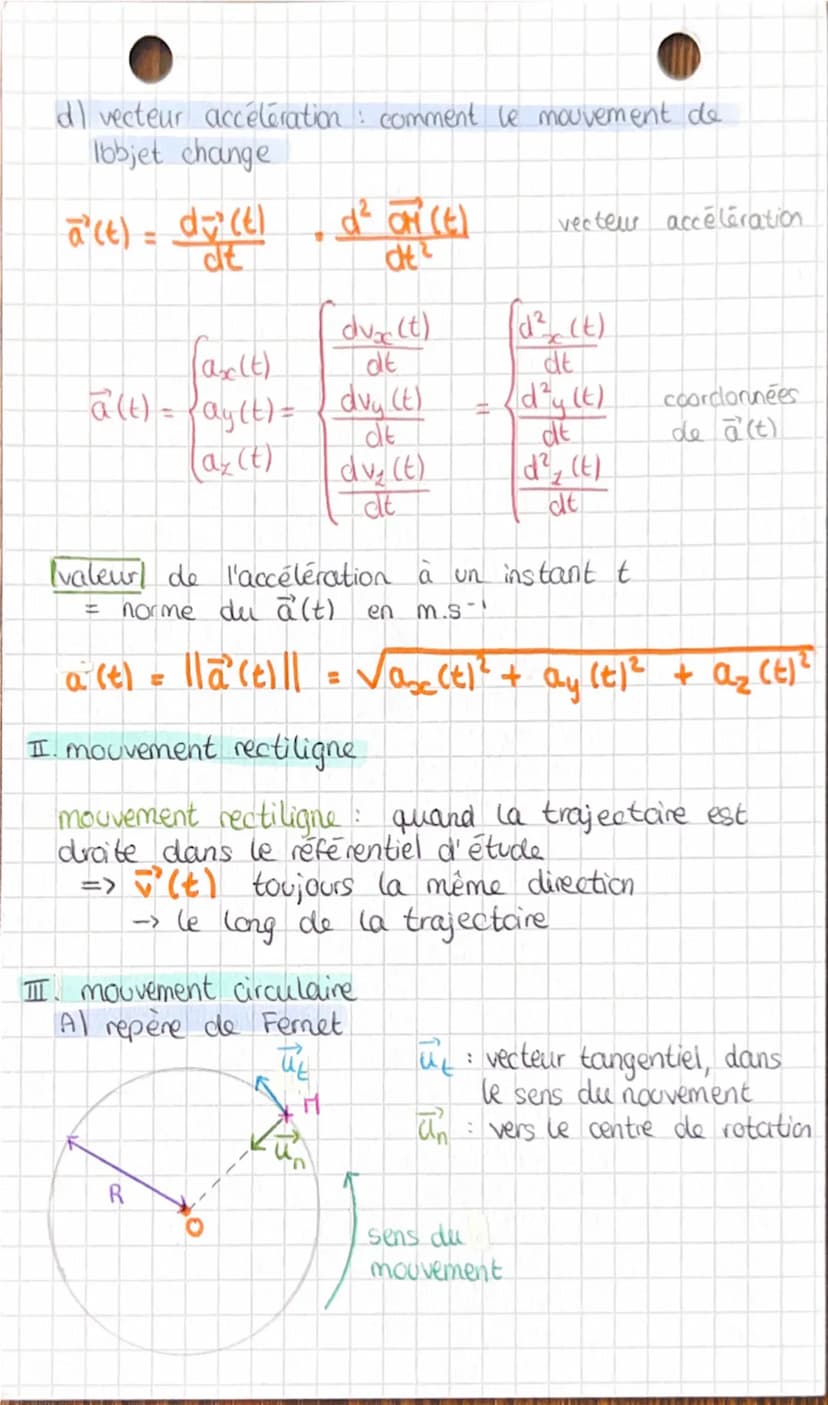 d) vecteur accélération : comment le mouvement de
l'objet change
a⃗(t) = dv⃗(t)/dt . d² OM⃗(t)/dt² vecteur accélération
a⃗(t) = { ax(t) ay(t) az(t) = { dvx(t)/dt dvy(t)/dt dvz(t)/dt = { d²x(t)/dt d²y(t)/dt d²z(t)/dt
coordonnées
de a⃗(t)
valeur de l'accélération à un instant t
= norme du a⃗(t) en m.s⁻¹
a(t) = ||a⃗(t)|| = √(ax(t)² + ay(t)² + az(t)²)
II. mouvement rectiligne
mouvement rectiligne : quand la trajectoire est
droite dans le référentiel d'étude
=> v⃗(t) toujours la même direction
-> le long de la trajectoire
III. mouvement circulaire
A) repère de Fernet
u⃗t : vecteur tangentiel, dans
le sens du nouvement
u⃗n : vers le centre de rotation
u⃗t
M
u⃗n
R
O
sens du
mouvement